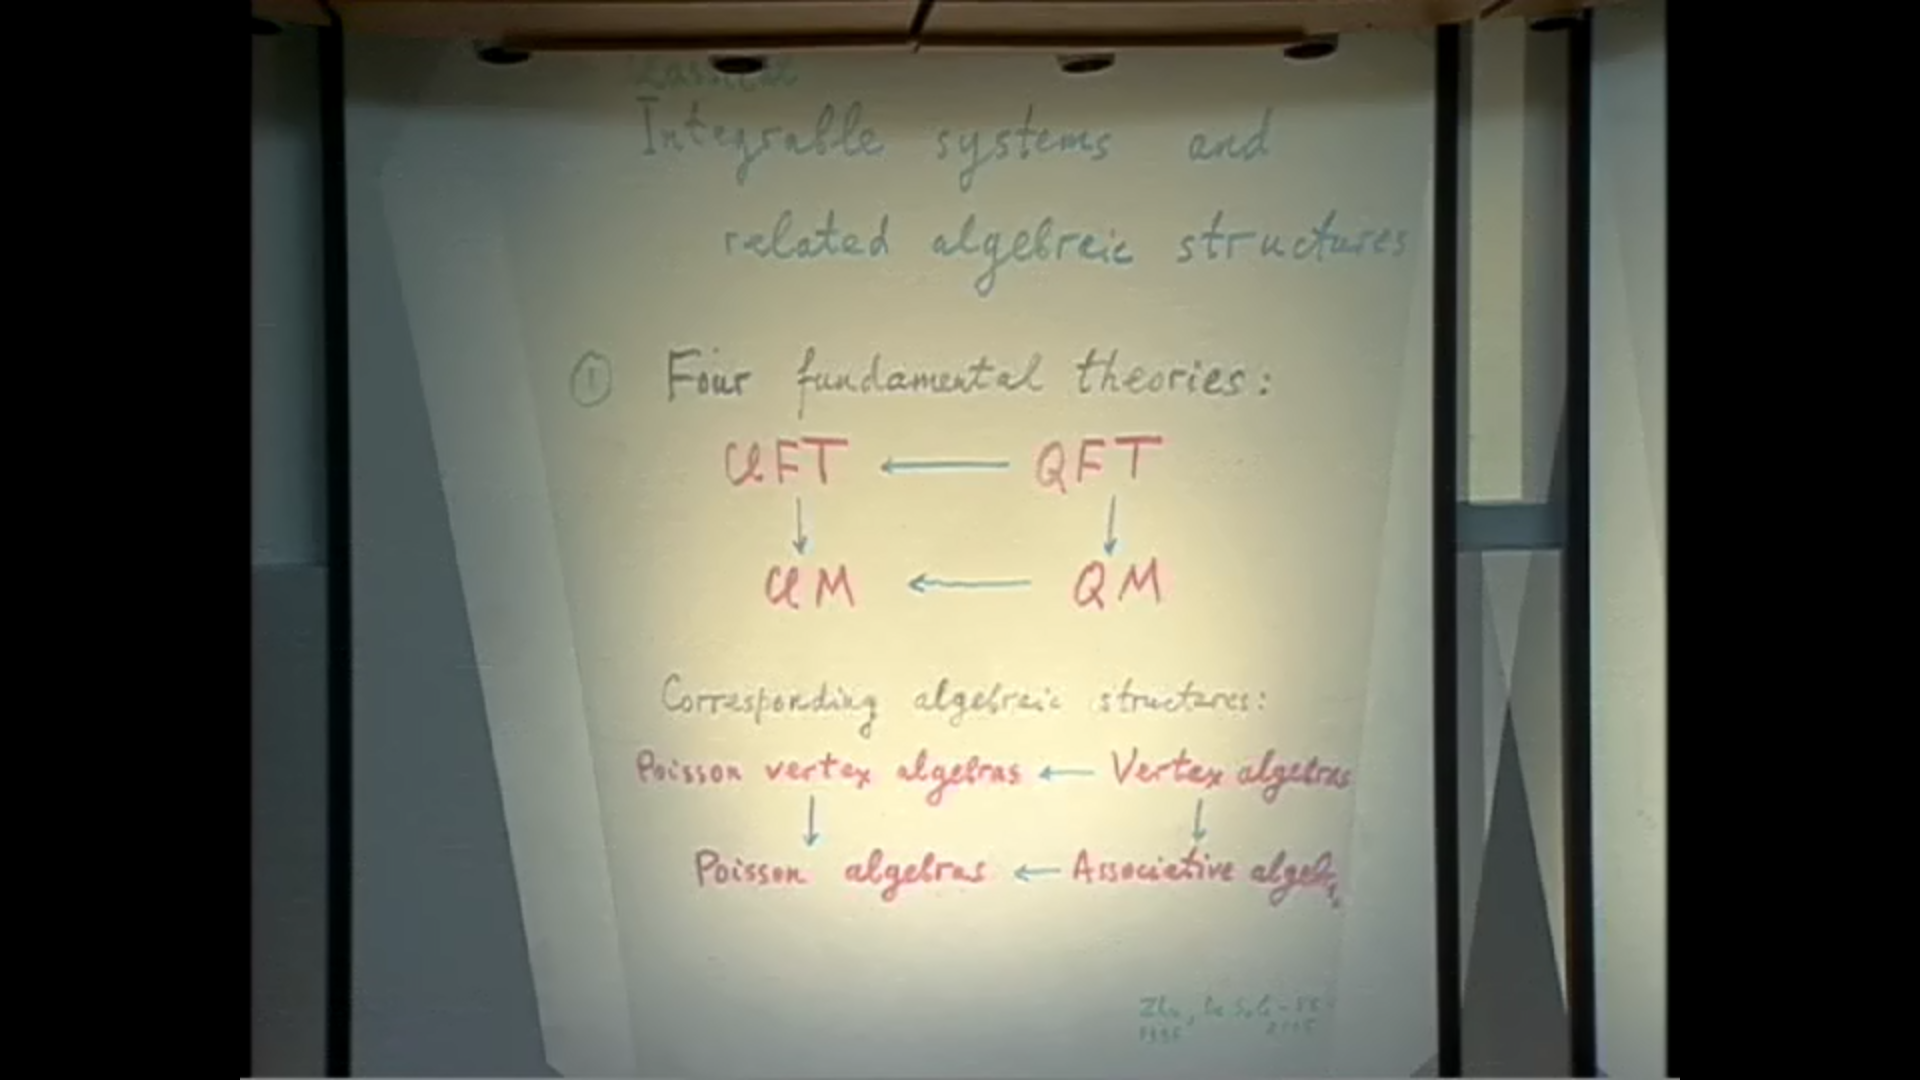 Integrable systems and
related algebraic structures
① Four fundamental theories:
ClFT ← QFT
↓ ↓
ClM ← QM
Corresponding algebraic structures:
Poisson vertex algebras ← Vertex algebras
↓ ↓
Poisson algebras ← Associative algebr
Zhu, De Sole